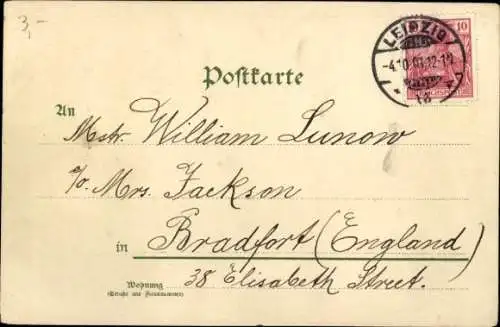 3,-
LEIPZIG
10
Postkarte
An
Mstr. William Lunow
p/o Mrs. Jackson
in Bradfort (England)
Wohnung
38 Elisabeth Street.
(Straße und Hausnummer)